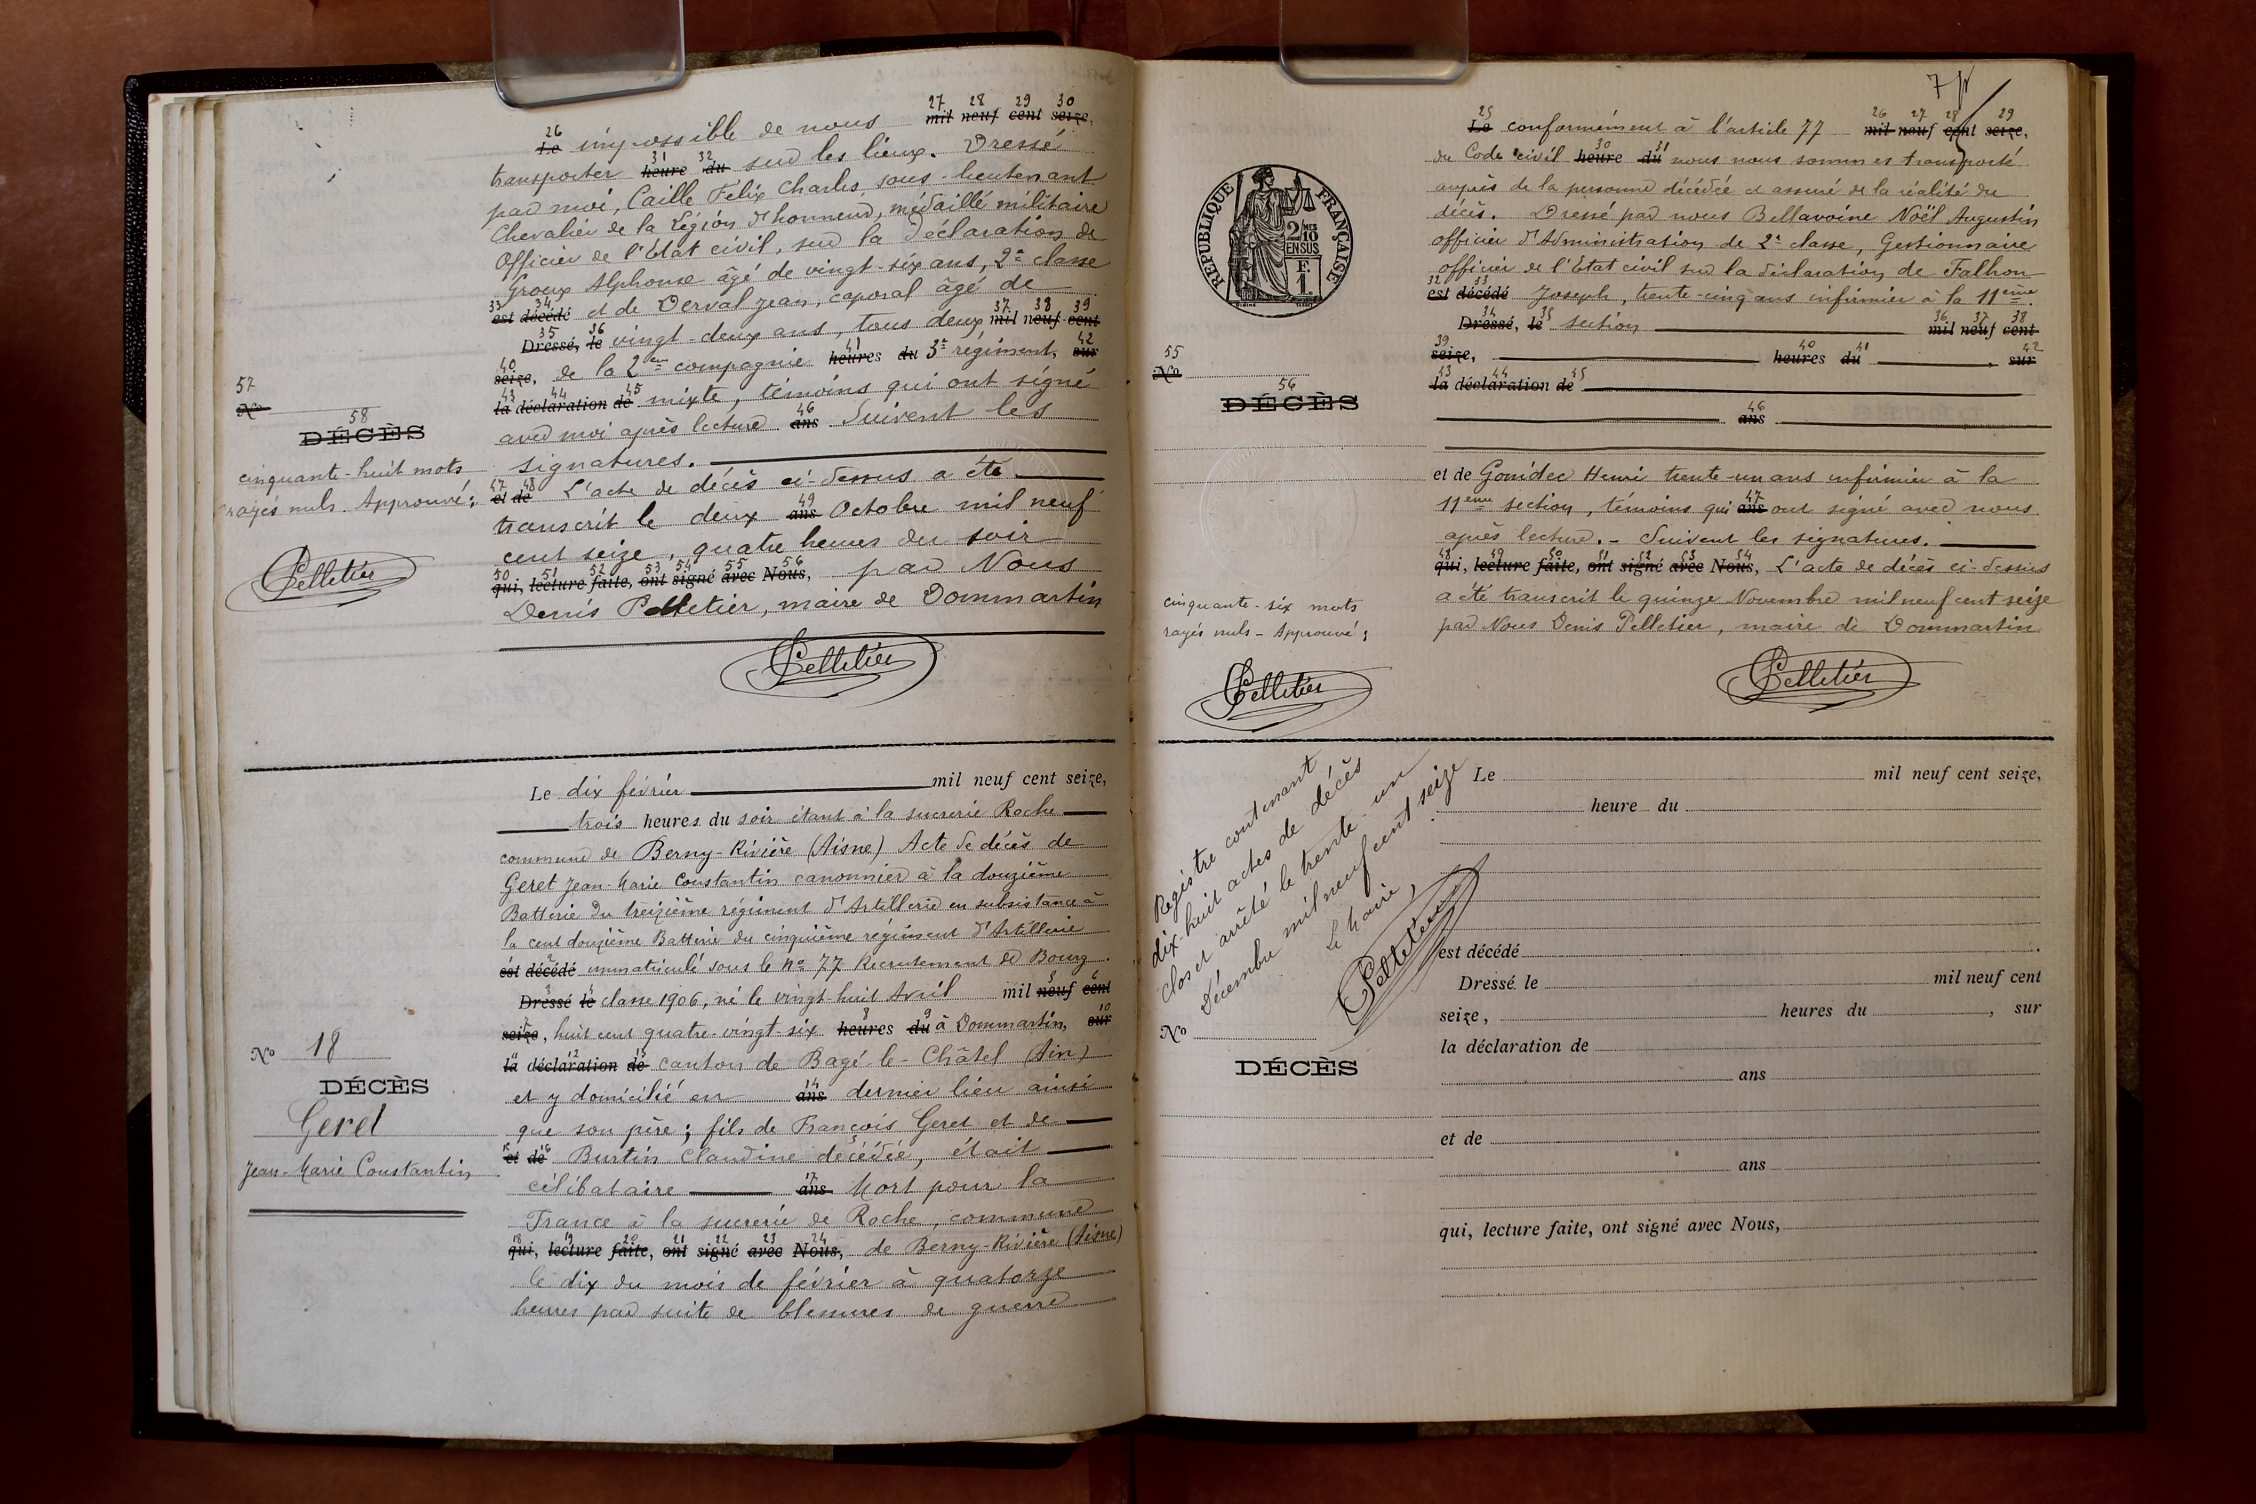 27 28 29 30
26
Le impossible de nous mil neuf cent seize,
31 32
transporter heure du sur les lieux. Dressé
par moi, Caille Félix Charles, sous-lieutenant
Chevalier de la Légion d'honneur, médaillé militaire
Officier de l'Etat civil, sur la déclaration de
Groux Alphonse âgé de vingt-six ans, 2e classe
33 34
est décédé et de Derval Jean, caporal âgé de
35 36 37 38 39
Dressé, le vingt-deux ans, tous deux mil neuf cent
40 41 42
seize, de la 2em compagnie heures du 3e régiment, sur
43 44 45
la déclaration de mixte, témoins qui ont signé
46
avec moi après lecture ans Suivent les
signatures.
47 48
et de L'acte de décès ci-dessus a été
49
transcrit le deux ans Octobre mil neuf
cent seize, quatre heures du soir
50 51 52 53 54 55 56
qui, lecture faite, ont signé avec Nous, par Nous
Denis Pelletier, maire de Dommartin
Pelletier
57
No
58
DÉCÈS
cinquante-huit mots
rayés nuls. Approuvé:
Pelletier
Le dix février mil neuf cent seize,
trois heures du soir étant à la sucrerie Roche
commune de Berny-Rivière (Aisne) Acte de décès de
Geret Jean-Marie Constantin canonnier à la douzième
Batterie du treizième régiment d'Artillerie en subsistance à
la cent douzième Batterie du cinquième régiment d'Artillerie
est décédé immatriculé sous le No 77 Recrutement de Bourg.
Dressé le classe 1906, né le vingt huit Avril mil neuf cent
seize, huit cent quatre-vingt-six heures du à Dommartin, sur
la déclaration de canton de Bagé-le-Châtel (Ain)
14
et y domicilié en ans dernier lieu ainsi
que son père; fils de François Geret et de
et de Burtin Claudine décédée, était
17
célibataire ans Mort pour la
France à la sucrerie de Roche, commune
18 19 20 21 22 23 24
qui, lecture faite, ont signé avec Nous, de Berny-Rivière (Aisne)
le dix du mois de février à quatorze
heures par suite de blessures de guerre
No 18
DÉCÈS
Geret
Jean-Marie Constantin
RÉPUBLIQUE FRANÇAISE
2/10 EN SUS
F. 1
25 26 27 28 29
Le conformément à l'article 77 mil neuf cent seize,
30 31
du Code civil heure du nous nous sommes transporté
auprès de la personne décédée et assuré de la réalité du
décès. Dressé par nous Bellavoine Noël Augustin
officier d'Administration de 2e classe, Gestionnaire
officier de l'Etat civil sur la déclaration de Falhon
32 33
est décédé Joseph, trente-cinq ans infirmier à la 11eme
34 35 36 37 38
Dressé, le section mil neuf cent
39 40 41 42
seize, heures du , sur
43 44 45
la déclaration de
46
ans
et de Gouidec Henri trente-un ans infirmier à la
47
11eme section, témoins qui ans ont signé avec nous
après lecture. - Suivent les signatures.
48 49 50 51 52 53 54
qui, lecture faite, ont signé avec Nous, L'acte de décès ci-dessus
a été transcrit le quinze Novembre mil neuf cent seize
par Nous Denis Pelletier, maire de Dommartin
Pelletier
55
No
56
DÉCÈS
cinquante-six mots
rayés nuls - Approuvé:
Pelletier
Registre contenant
dix-huit actes de décès
clos et arrêté le trente-un
décembre mil neuf cent seize
Le Maire,
Pelletier
No
DÉCÈS
Le mil neuf cent seize,
heure du
est décédé .
Dressé le mil neuf cent
seize, heures du , sur
la déclaration de
ans
et de
ans
qui, lecture faite, ont signé avec Nous,